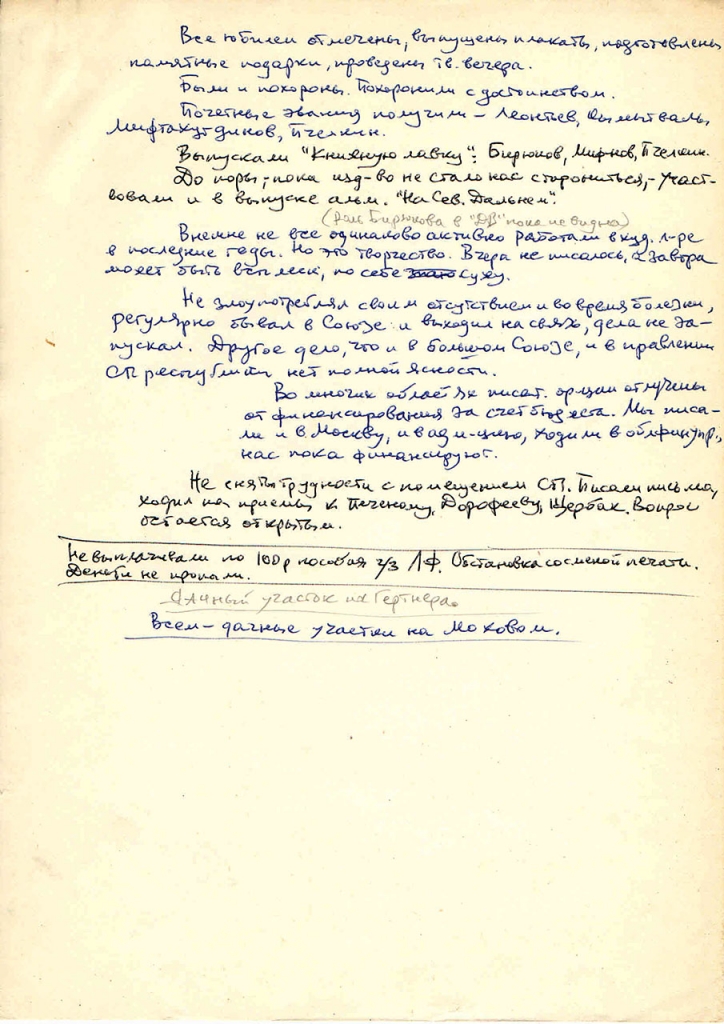 Все юбилеи отмечены, выпущены плакаты, подготовлены
памятные подарки, проведены тв. вечера.
Были и похороны. Похоронили с достоинством.
Почетные звания получили – Леонтьев, Кымытваль,
Мифтахутдинов, Пчелкин.
Выпускали "Книжную лавку": Бирюков, Мифтахов, Пчелкин.
До поры, – пока изд-во не стало нас сторониться, – участ-
вовали и в выпуске альм. "На Сев. Дальнем".
(роль Бирюкова в "ДВ" пока не видна)
не все одинаково активно работали в худ. л-ре
в последние годы. Но это творчество. Вчера не писалось, а завтра
может быть всплеск, по себе сужу.
Не злоупотреблял своим отсутствием и во время болезни,
регулярно бывал в Союзе и выходил на связь, дела не за-
пускал. Другое дело, что и в большом Союзе, и в правлении
СП республики нет полной ясности.
Во многих областях писат. орг-ции отлучены
от финансирования за счет бюджета. Мы писа-
ли и в Москву, и в адм-цию, ходили в облфинупр.,
нас пока финансируют.
Не сняты трудности с помещением СП. Писали письма,
ходил на приемы к Печеному, Дорофееву, Щербак. Вопрос
остается открытым.
Не выплачивали по 100 р пособия ч/з ЛФ. Обстановка со сменой печати.
Деньги не пропали.
Дачный участок на Гертнера.
Всем – дачные участки на Моховом.